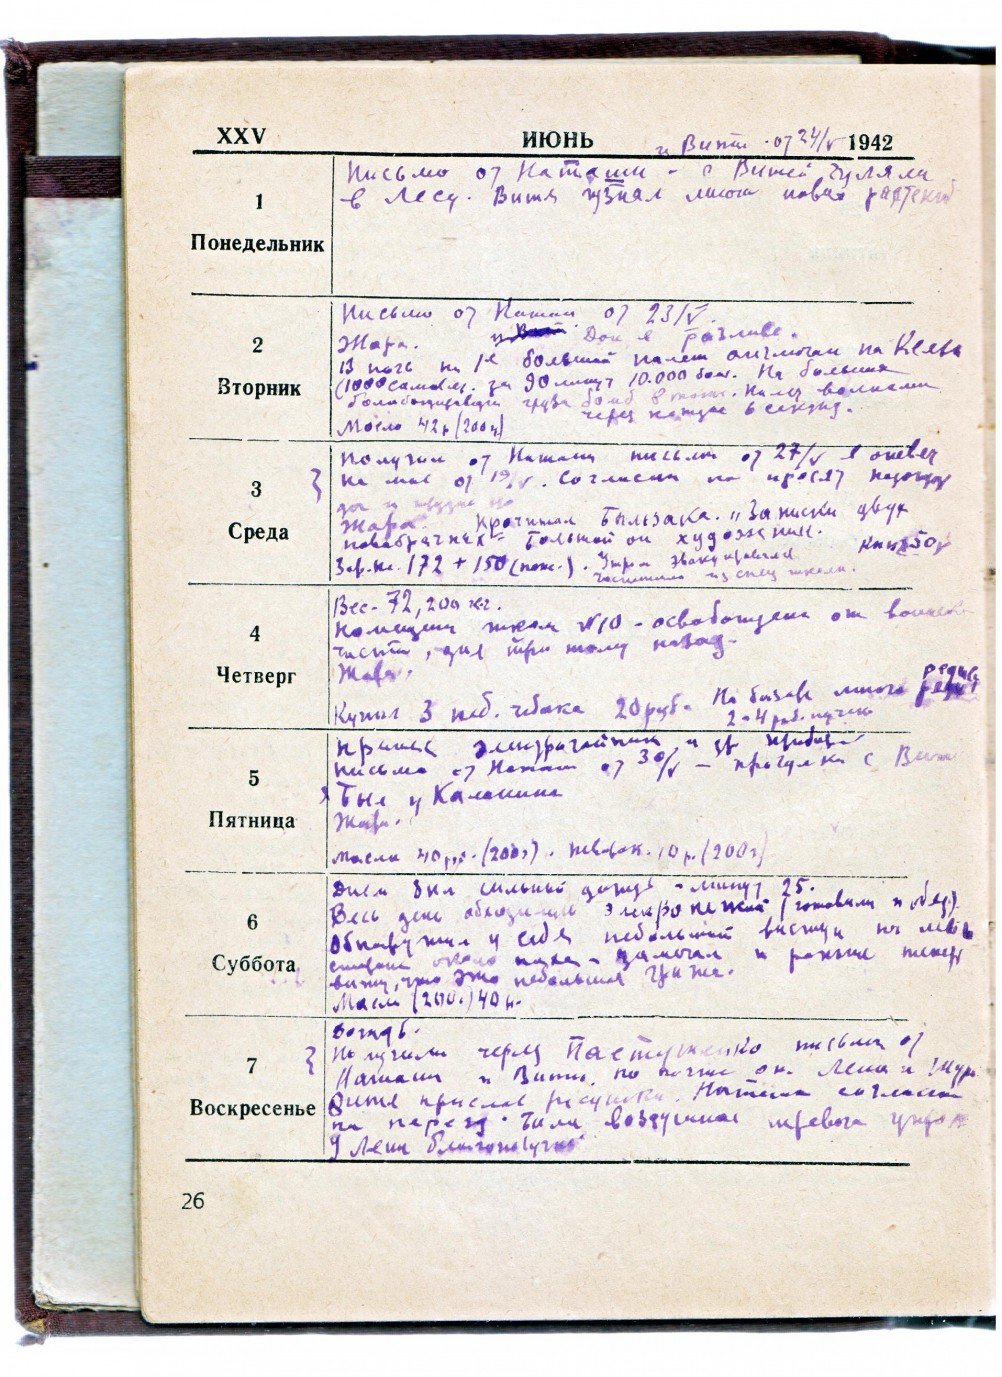 XXV ИЮНЬ и Вити от 24/V 1942
1
Понедельник
Письмо от Наташи - с Витей гуляли
в лесу. Витя узнал много новых растений
2
Вторник
Письмо от Наташи от 23/V.
Жара. Дон в разливе.
В ночь на 1е большой налет англичан на Кельн
(1000 самолет. за 90 минут 10.000 бомб. На больших
бомб. Налет волнами
через каждые 6 секунд.
Масло 42 р (200 г)
3
Среда
Получил от Наташи письмо от 27/V в ответ
на мое от 19/V. Согласны но просят
Жара. Прочитал Бальзака. "Записки двух
новобрачных" Большой он художник.
172 + 150 (пенс.). Утром эвакуировался
из спец школы.
4
Четверг
Вес - 72,200 кг.
Помещен школы №10 - освобождена от воинск
части, дня три тому назад.
Жара.
Купил 3 неб. чебака 20 руб. На базаре много редис
2-4 руб. пучек
5
Пятница
электрочайник и др прибор
Письмо от Наташи от 30/V - прогулки с Витей
Был у Калинина
Жара.
Масло 40 р. (200 г). 10 р. (200 г)
6
Суббота
Днем был сильный дождь - минут 25.
Весь день обходились (готовили и обед).
Обнаружил у себя небольшой выступ на левой
стороне около паха - замечал и раньше теперь
вижу, что это небольшая грыжа.
Масло (200 г.) 40 р.
7
Воскресенье
Дождь.
Получили через Пастушенко письма от
Наташи и Вити, по почте от Лены и Шуры
Витя прислал рисунки. Наташа согласна
на переезд. Была воздушная тревога утром
У Лены благополучно
26